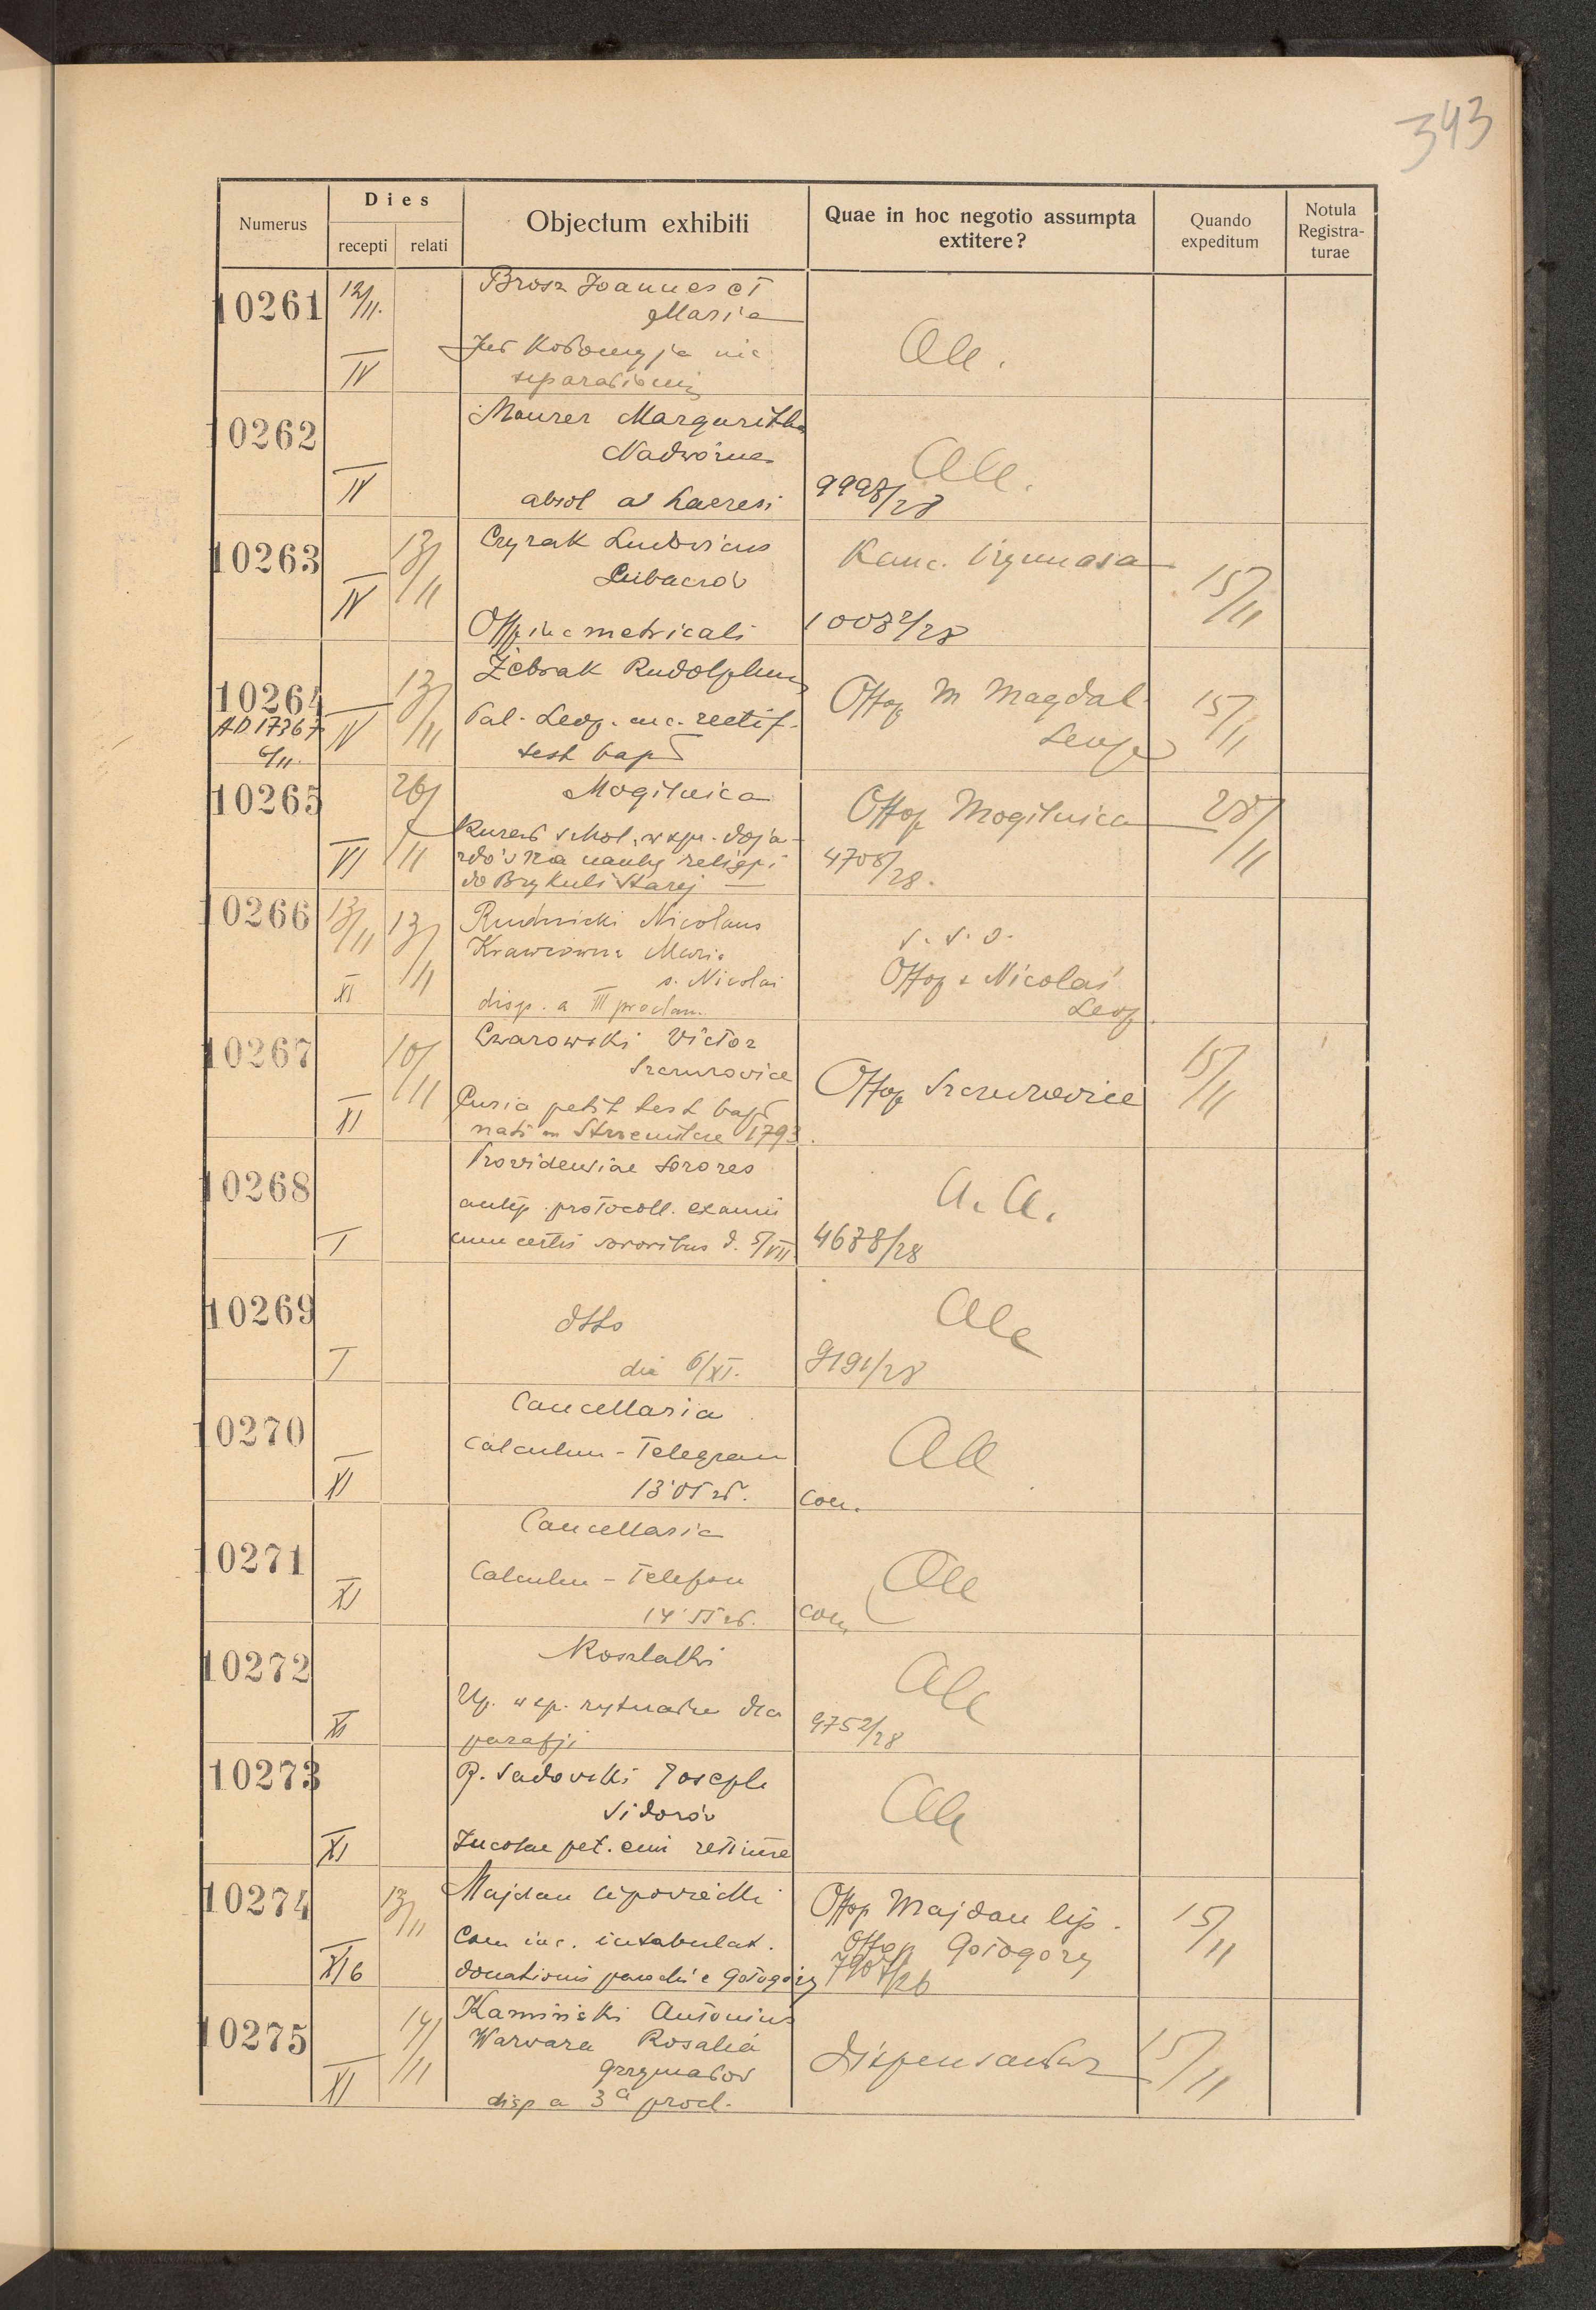 343
Numerus
Dies
recepti
relati
Objectum exhibiti
Quae in hoc negotio assumpta
extitere?
Quando
expeditum
Notula
Registra-
turae
10261
12/11.
IV
Brosz Joannes et
Maria
separationis
10262
IV
Maurer Margaritha
Nadwórna
absol ab haeresi
9998/28
10263
IV
13/11
Czyrak Ludovicus
Lubaczów
Offop inc metricali
10082/28
15/11
10264
AD 17367
6/11.
IV
13/11
Żebrak Rudolphus
Pal. Leop. rectif.
test bapt
Offop M Magdal.
Leop
15/11
10265
VI
26/11
Mogilnica
Kurat schol. w spr. doja-
zdów na naukę religji
do Brykuli Starej —
Offop Mogilnica
4708/28.
28/11
10266
13/11
XI
13/11
Rudnicki Nicolaus
Krawcowna Maria
s. Nicolai
disp. a III proclam.
s. s. o.
Offop s Nicolai
Leop.
10267
XI
10/11
Czarowski Victor
Szczurowice
Curia petit test bapt
nati in 1793.
Offop Szczurowice
15/11
10268
I
Providentiae Sorores
protocoll. examini
cum certis sororibus d. 5/VII.
a. a.
4688/28
10269
I
dtto
die 6/XI.
9191/28
10270
XI
Cancellaria
Calculum - Telegram
13'05 zł.
con.
10271
XI
Cancellaria
Calculum - Telefon
14'55 zł.
con.
10272
XI
w sp. dla
parafji
9752/28
10273
XI
P. Sadowski Joseph
Sidorów
Incolae pet. eum retinere
10274
XI 6
13/11
Majdan lipowiecki
Com inc. intabulat.
donationis parochi e Gołogóry
Offop Majdan lip.
Offop Gołogóry
15/11
10275
XI
14/11
Kamiński Antonius
Warvara Rosalia
Grzymałów
disp a 3a procl.
Dispensantur
15/11